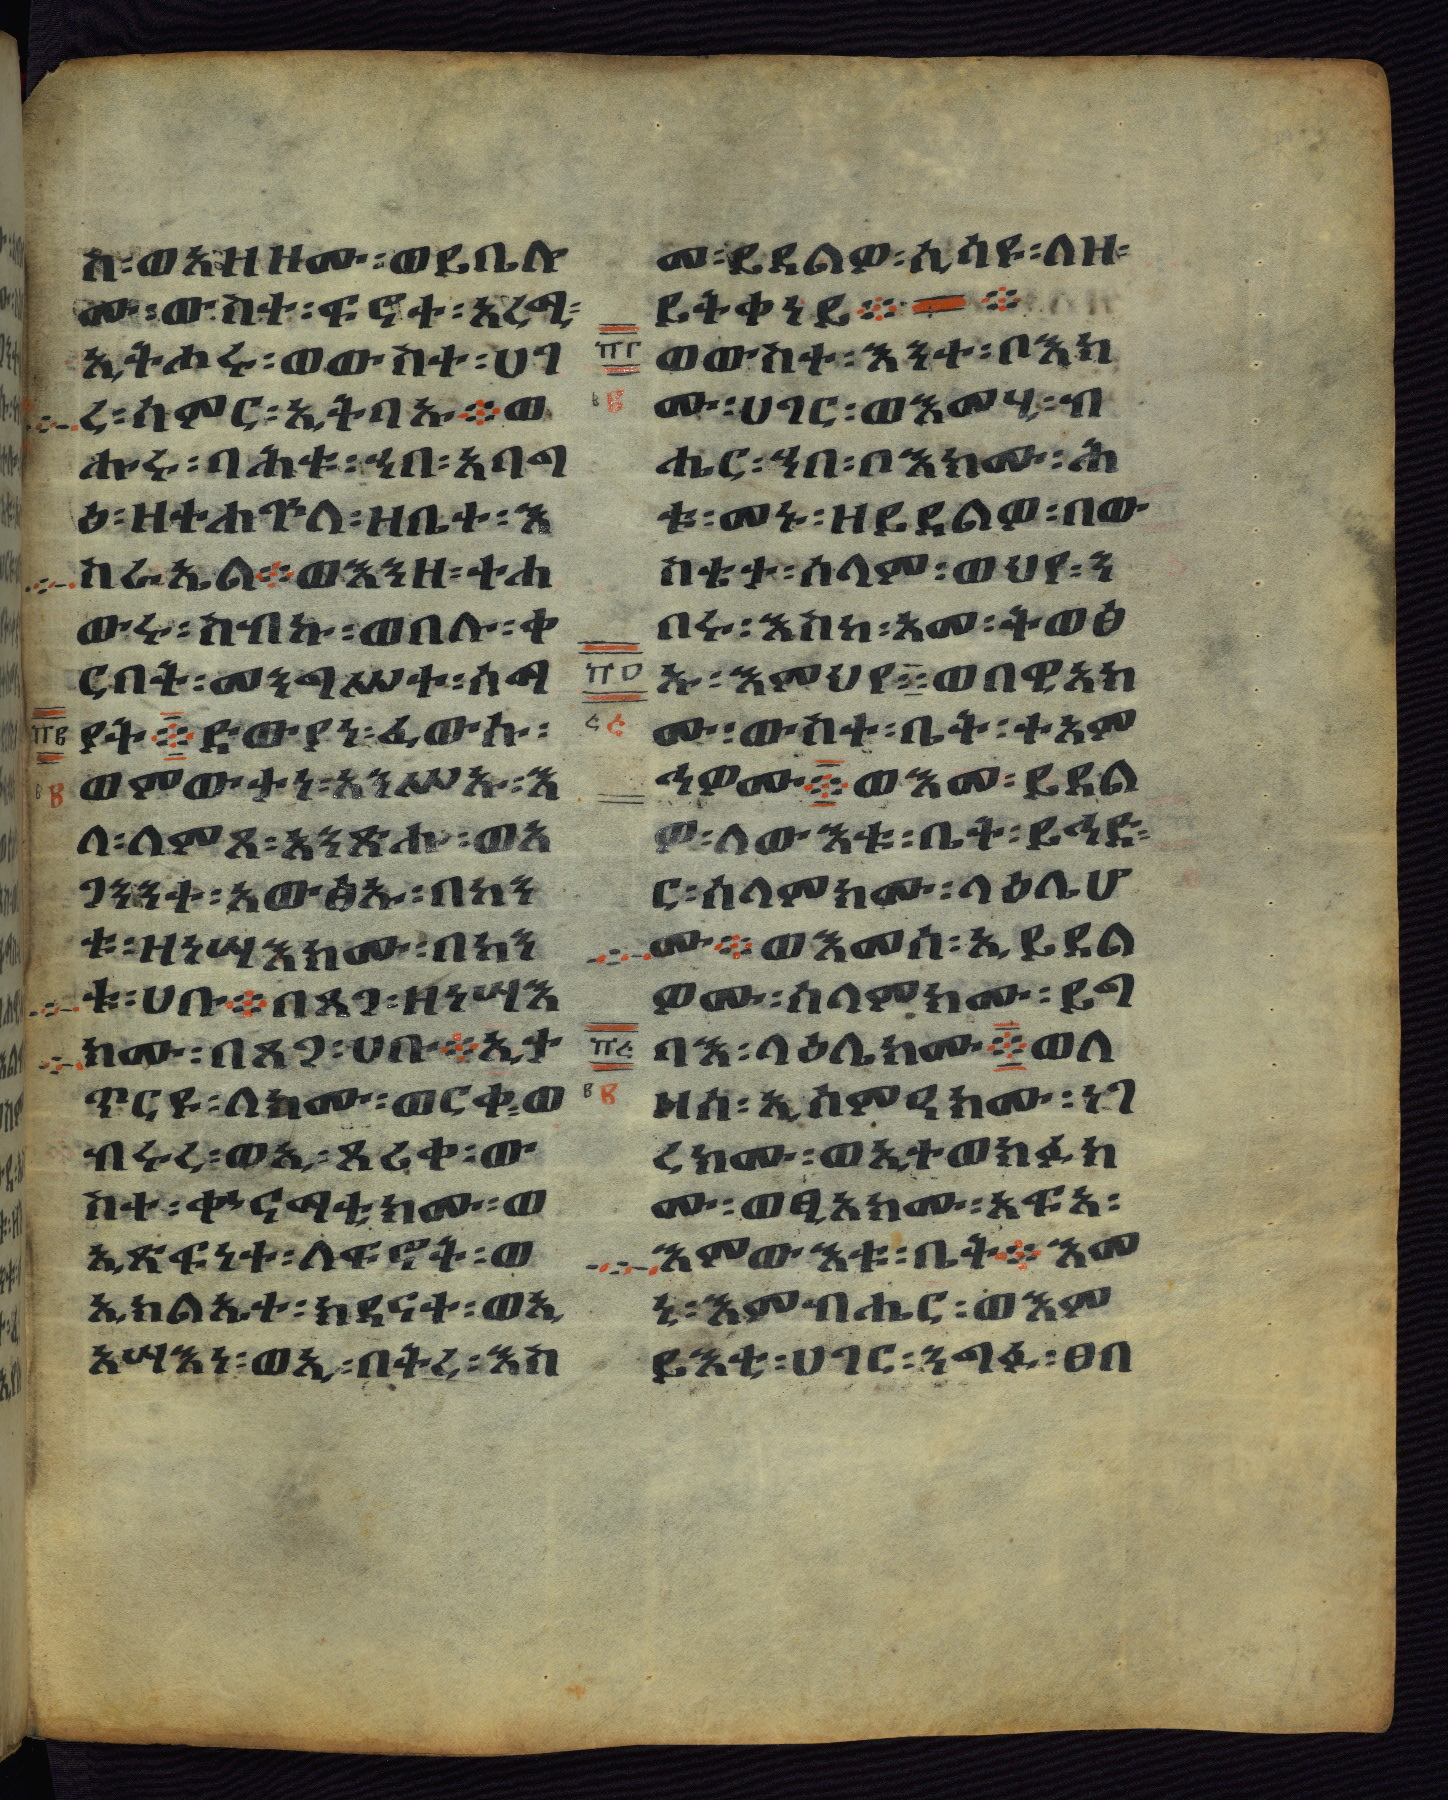 ስ፡ወአዘዞሙ፡ወይቤሎ
ሙ፡ውስተ፡ፍኖተ፡አረሚ፡
ኢትሖሩ፡ወውስተ፡ሀገ
ረ፡ሰምር፡ኢትባኡ፨ወ
ሑሩ፡ባሕቱ፡ኀበ፡አባግ
ዕ፡ዘተሐጕለ፡ዘቤተ፡እ
ስራኤል፨ወእንዘ፡ተሐ
ውሩ፡ስብኩ፡ወበሉ፡ቀ
ርበት፡መንግሥተ፡ሰማ
ያት፨ድውያነ፡ፈውሱ፡
ወምውታነ፡አንሥኡ፡እ
ለ፡ለምጽ፡አንጽሑ፡ወአ
ጋንንተ፡አውፅኡ፡በከን
ቱ፡ዘነሣእክሙ፡በከን
ቱ፡ሀቡ፨በጸጋ፡ዘነሣእ
ክሙ፡በጸጋ፡ሀቡ፨ኢታ
ጥርዩ፡ለክሙ፡ወርቀ፡ወ
ብሩረ፡ወኢ፡ጸሪቀ፡ው
ስተ፡ቅናማቲክሙ፡ወ
ኢጽፍነተ፡ለፍኖት፡ወ
ኢክልኤተ፡ክዳናተ፡ወኢ
አሣእነ፡ወኢ፡በትረ፡እስ
መ፡ይደልዎ፡ሲሳዩ፡ለዘ፡
ይትቀነይ፨ ፨
፹፫ ወውስተ፡እንተ፡ቦእክ
ሙ፡ሀገር፡ወእመሂ፡ብ
ሔር፡ኀበ፡ቦእክሙ፡ሕ
ቱ፡መኑ፡ዘይደልዎ፡በው
ስቴታ፡ሰላም፡ወህየ፡ኀ
በሩ፡እስከ፡አመ፡ትወፅ
፹፬ ኡ፡እምህየ፨ወበዊአክ
ሙ፡ውስተ፡ቤት፡ተአም
ኅዎሙ፨ወእመ፡ይደል
ዎ፡ለውእቱ፡ቤት፡ይኅድ፡
ር፡ሰላምክሙ፡ላዕሌሆ
ሙ፨ወእመሰ፡ኢይደል
ዎሙ፡ሰላምክሙ፡ይግ
፹፭ ባእ፡ላዕሌክሙ፨ወለ
ዘሰ፡ኢሰምዓክሙ፡ነገ
ረክሙ፡ወኢተወክፈክ
ሙ፡ወፂአክሙ፡አፍአ፡
እምውእቱ፡ቤት፨እመ
ኒ፡እምብሔር፡ወእም
ይእቲ፡ሀገር፡ንግፉ፡ፀበ